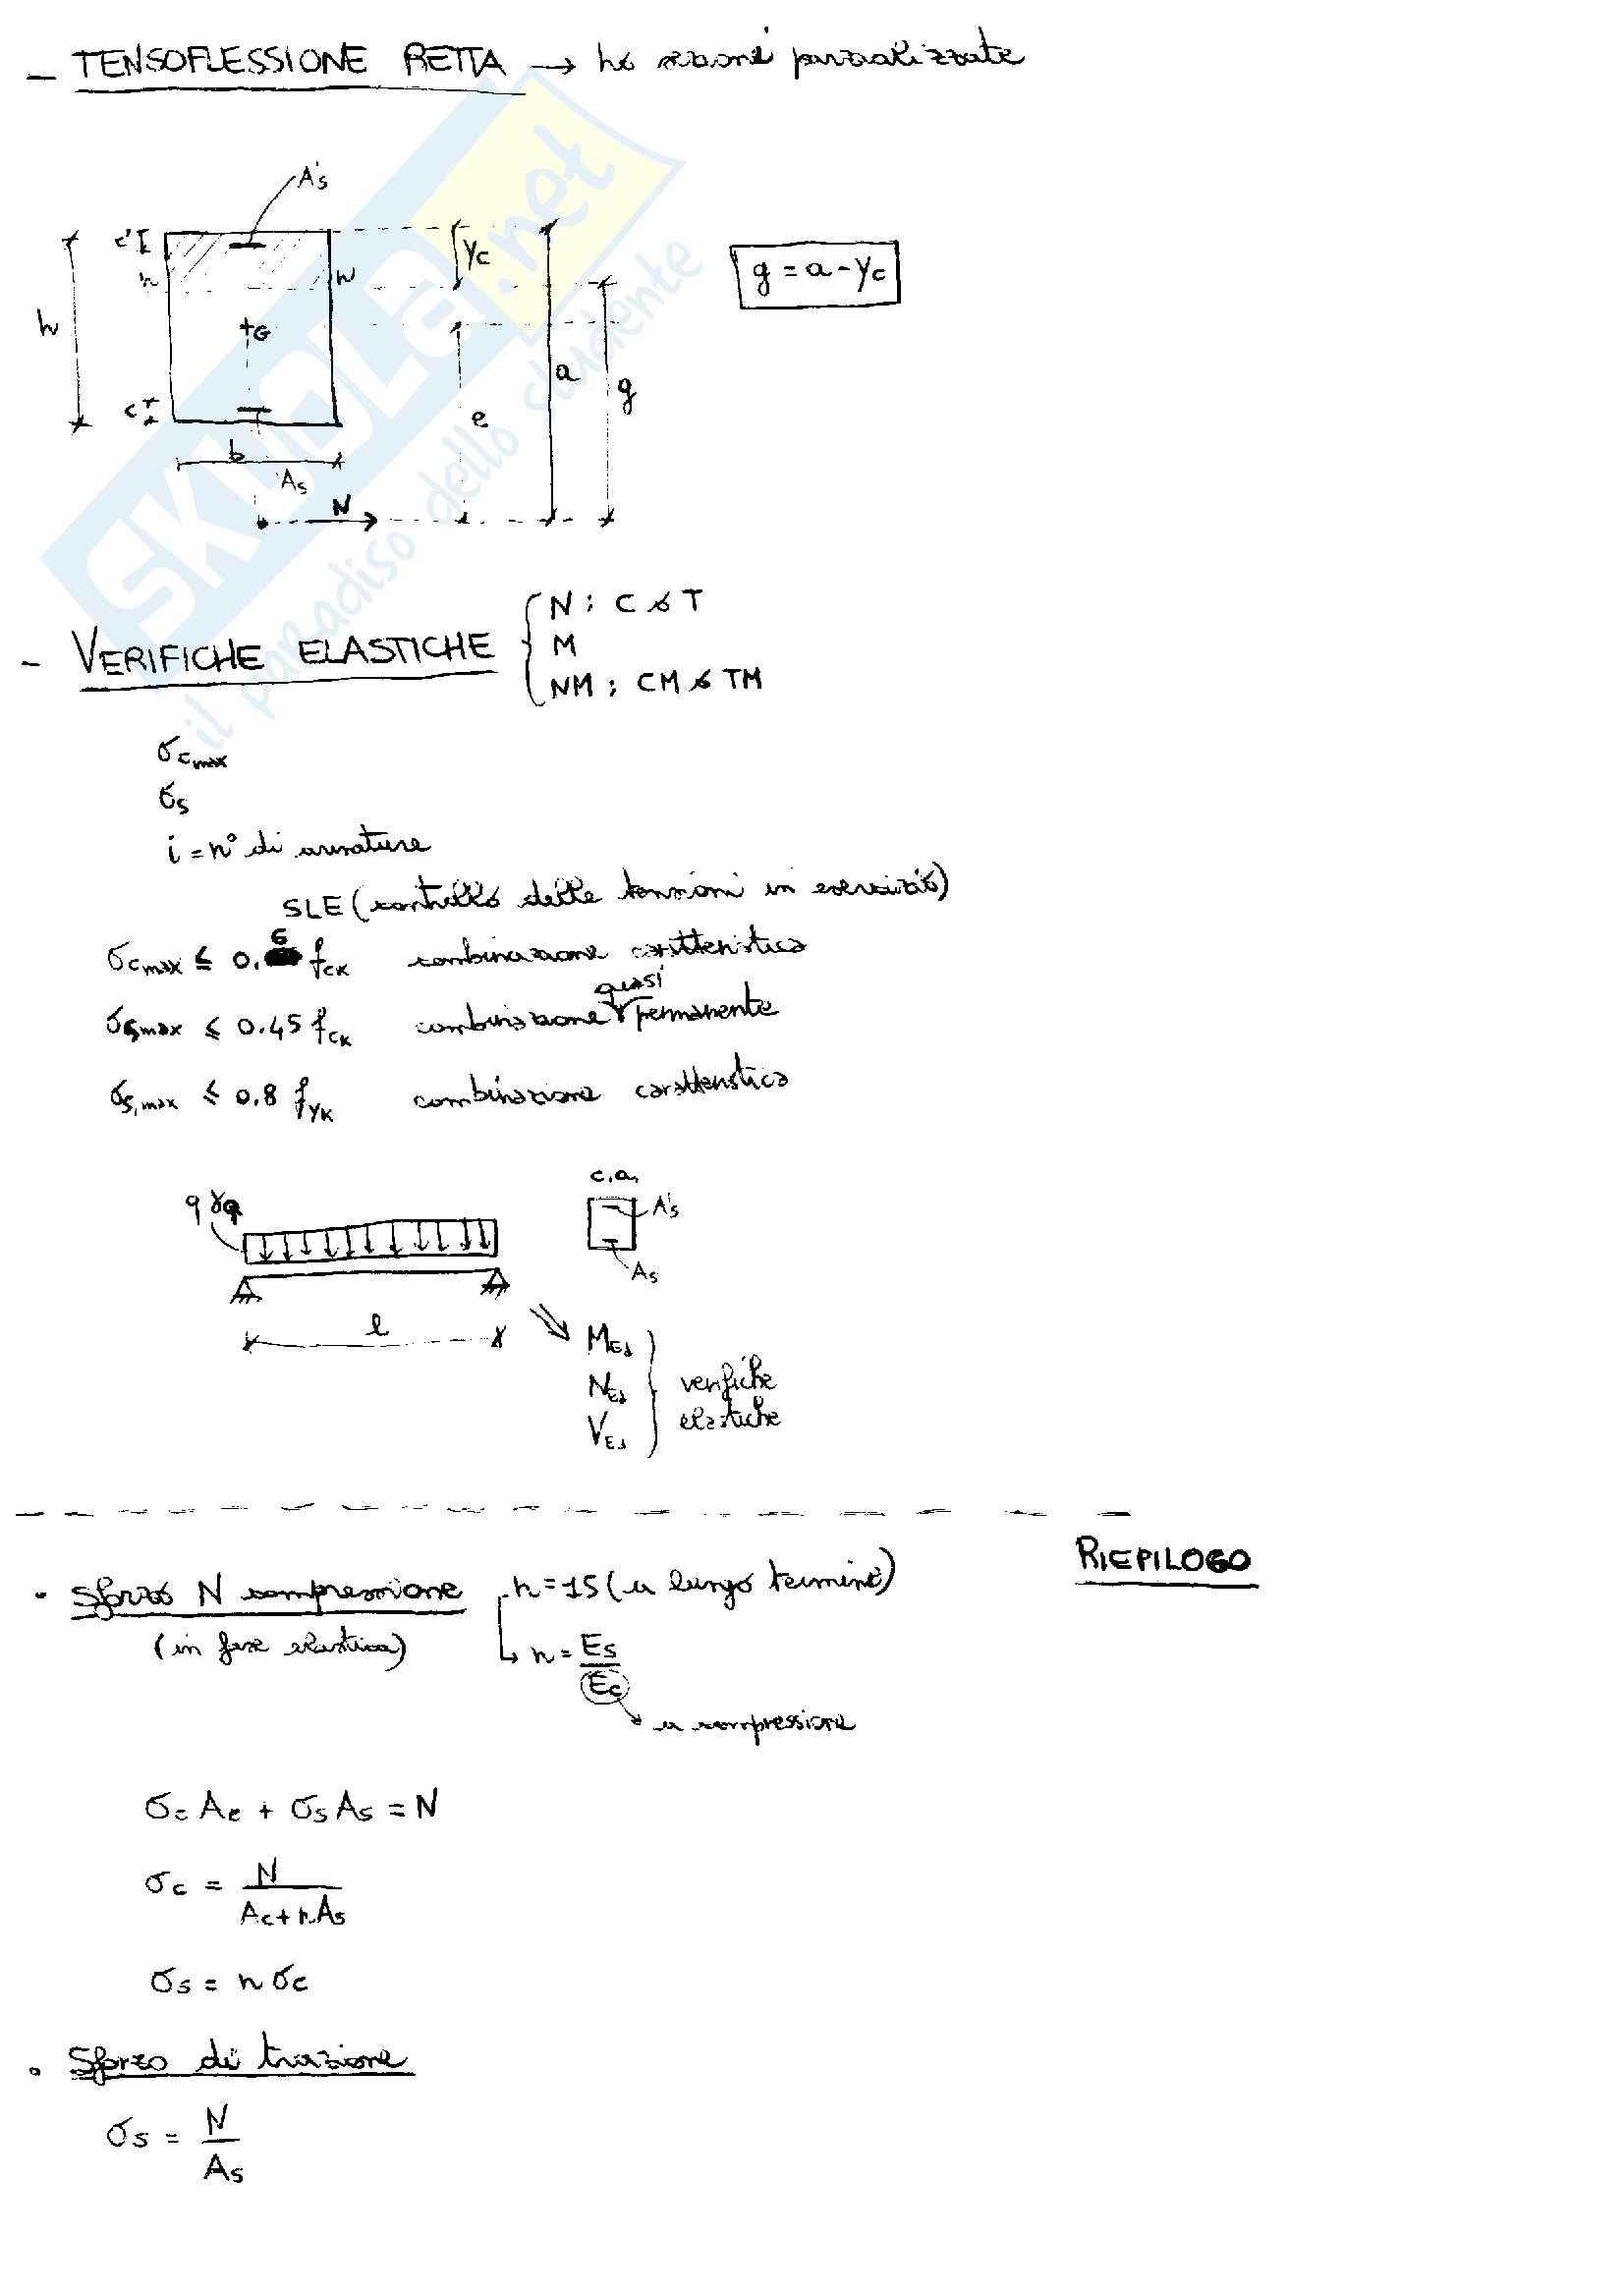 - TENSOFLESSIONE RETTA → ho sezioni parzializzate
A's
c'
yc
n n
g = a - yc
h
G
a
g
c
e
b
As
N
SKUOLA.net
il paradiso dello studente
- VERIFICHE ELASTICHE { N ; C o T
M
NM ; CM o TM
σcmax
σs
i = n° di armature
SLE (controllo delle tensioni in esercizio)
σcmax ≤ 0.6 fck combinazione caratteristica
σc,max ≤ 0.45 fck combinazione quasi permanente
σs,max ≤ 0.8 fyk combinazione caratteristica
c.a.
q γq
A's
As
l
MEd
NEd } verifiche
VEd elastiche
RIEPILOGO
• Sforzo N compressione n = 15 (a lungo termine)
(in fase elastica) ↳ n = Es/Ec
→ a compressione
σc Ac + σs As = N
σc = N/(Ac + nAs)
σs = n σc
• Sforzo di trazione
σs = N/As